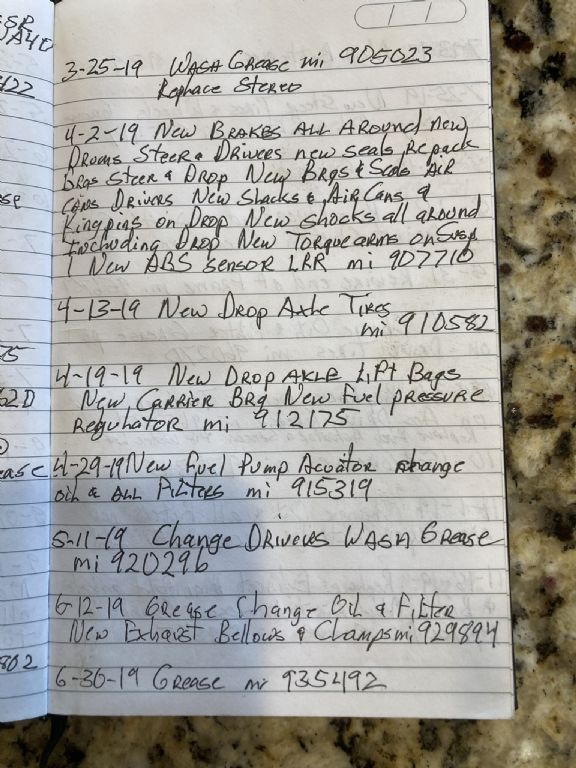 SSR
3-25-19 WASH GREASE mi 905023
Rephace STEREO
4-2-19 NEW BRAKES ALL AROUND new
DRoms STEER & DRIVERS new seals Repack
BRGS STEER & DROP NEW BRGS & SEALS AIR
CANS DRIVERS NEW Shacks & AIR CANS &
Kingpins on DROP NEW shocks all around
Including DROP NEW TORQUE ARMS ON Susp
1 NEW ABS SENSOR LRR mi 907710
4-13-19 NEW DROP Axhe TIRES
mi 910582
4-19-19 NEW DROP AXLE LiFt Bags
NEW CARRIER BRG NEW FUEL PRESSURE
Reguhator mi 912175
4-29-19 New Fuel Pump Acuator change
oil & ALL FILTERS mi 915319
5-11-19 Change DRIVERS WASH GREASE
mi 920296
6-12-19 Grease Change Oil & FilteR
New Exhaust Bellows & Clamps mi 929894
6-30-19 GREASE mi 935492
122
62D
ease
802